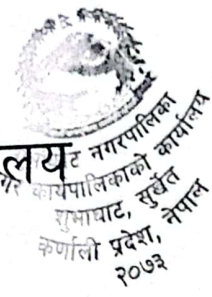 लय
ट नगरपालिका
गर कार्यपालिकाको कार्यालय
शुभाघाट, सुर्खेत
कर्णाली प्रदेश, नेपाल
२०७३